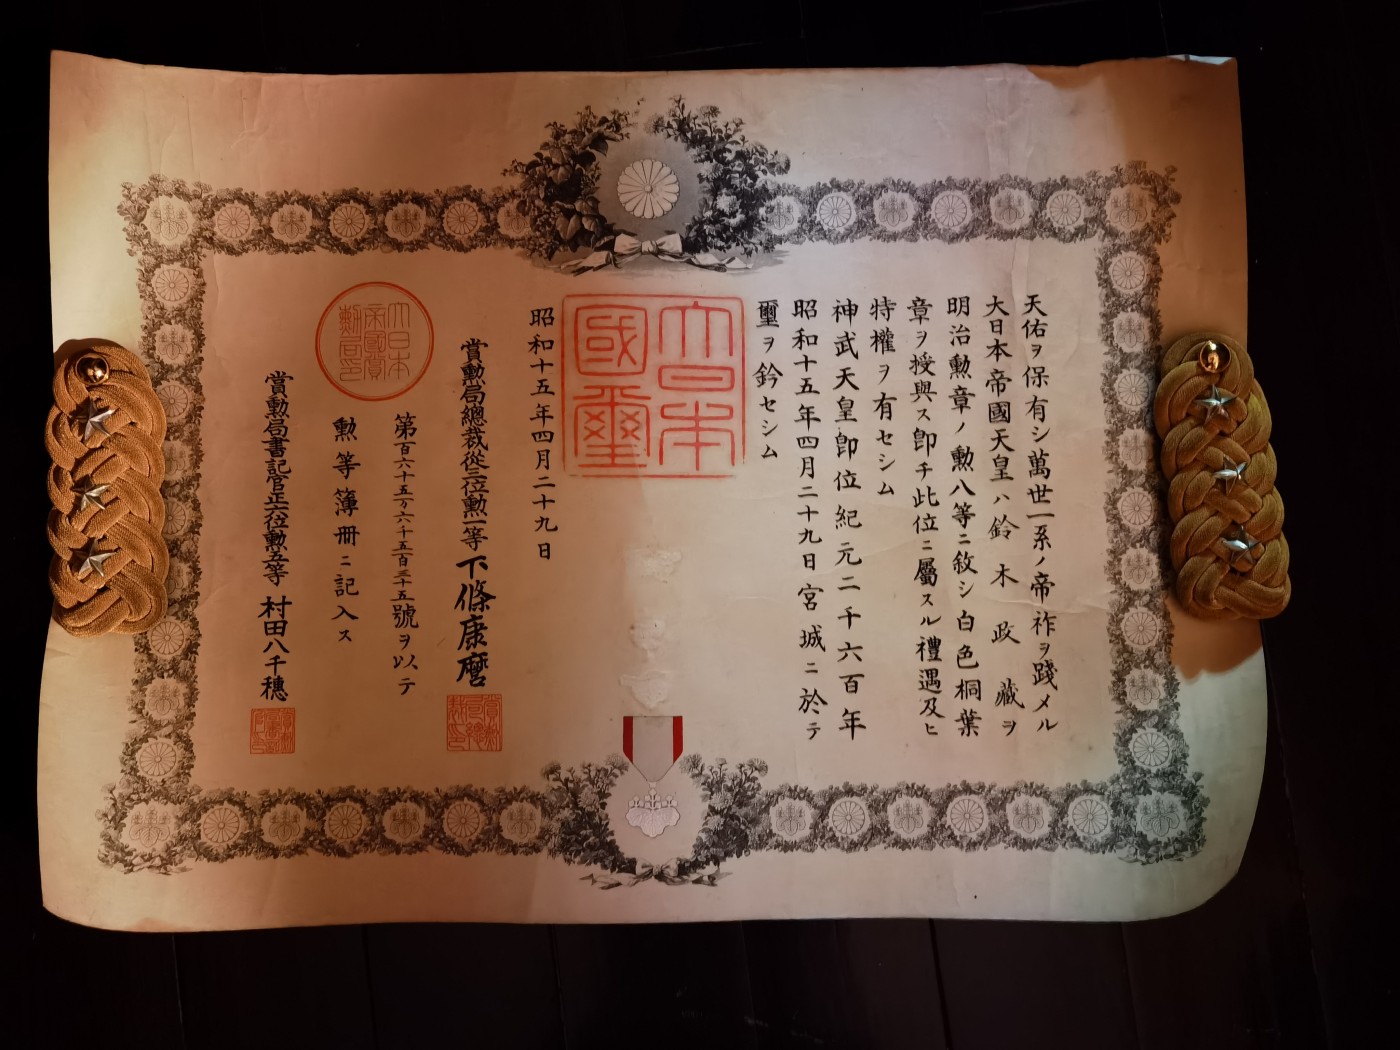 天佑ヲ保有シ萬世一系ノ帝祚ヲ踐メル
大日本帝國天皇ハ鈴木政藏ヲ
明治勲章ノ勲八等ニ敘シ白色桐葉
章ヲ授與ス即チ此位ニ屬スル禮遇及ヒ
特權ヲ有セシム
神武天皇即位紀元二千六百年
昭和十五年四月二十九日宮城ニ於テ
璽ヲ鈐セシム
大日本國璽
昭和十五年四月二十九日
賞勲局總裁從三位勲一等下條康麿
第百六十五万六千五百三十五號ヲ以テ
勲等簿冊ニ記入ス
大日本帝國賞勲局印
賞勲局書記官正六位勲五等村田八千穗